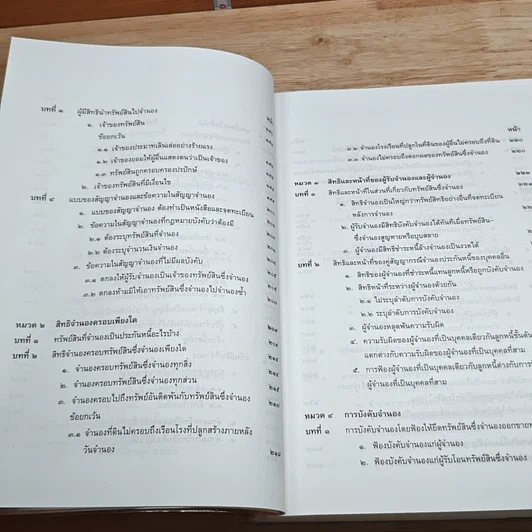 หน้า
บทที่ ๓ ผู้มีสิทธินำทรัพย์สินไปจำนอง
๑. เจ้าของทรัพย์สิน
ข้อยกเว้น
๑.๑ เจ้าของประมาทเลินเล่ออย่างร้ายแรง
๑.๒ เจ้าของยอมให้ผู้อื่นแสดงตนว่าเป็นเจ้าของ
๑.๓ ทรัพย์สินถูกครอบครองปรปักษ์
๒. เจ้าของทรัพย์สินที่มีเงื่อนไข
บทที่ ๔ แบบของสัญญาจำนองและข้อความในสัญญาจำนอง
๑. แบบของสัญญาจำนอง ต้องทำเป็นหนังสือและจดทะเบียน
๒. ข้อความในสัญญาจำนองที่กฎหมายบังคับว่าต้องมี
๒.๑ ต้องระบุทรัพย์สินที่จำนอง
๒.๒ ต้องระบุจำนวนเงินจำนอง
๓. ข้อความในสัญญาจำนองที่ไม่มีผลบังคับ
๓.๑ ตกลงให้ผู้รับจำนองเป็นเจ้าของทรัพย์สินซึ่งจำนอง
๓.๒ ตกลงห้ามมิให้เอาทรัพย์สินซึ่งจำนองไปจำนองซ้ำ
หมวด ๒ สิทธิจำนองครอบเพียงใด
บทที่ ๑ ทรัพย์สินที่จำนองเป็นประกันหนี้อะไรบ้าง
บทที่ ๒ สิทธิจำนองครอบทรัพย์สินซึ่งจำนองเพียงใด
๑. จำนองครอบทรัพย์สินซึ่งจำนองทุกสิ่ง
๒. จำนองครอบทรัพย์สินซึ่งจำนองทุกส่วน
๓. จำนองครอบไปถึงทรัพย์อันติดพันกับทรัพย์สินซึ่งจำนอง
ข้อยกเว้น
๓.๑ จำนองที่ดินไม่ครอบถึงเรือนโรงที่ปลูกสร้างภายหลัง
วันจำนอง ๒๑๘
หน้า
๓.๒ จำนองโรงเรือนที่ปลูกในที่ดินของผู้อื่นไม่ครอบถึงที่ดิน ๒๒๐
๓.๓ จำนองไม่ครอบถึงดอกผลของทรัพย์สินซึ่งจำนอง ๒๒๐
หมวด ๓ สิทธิและหน้าที่ของผู้รับจำนองและผู้จำนอง
บทที่ ๑ สิทธิและหน้าที่ในส่วนที่เกี่ยวกับทรัพย์สินซึ่งจำนอง
๑. สิทธิจำนองเป็นใหญ่กว่าทรัพยสิทธิอย่างอื่นที่จดทะเบียน
หลังการจำนอง
๒. ผู้รับจำนองมีสิทธิบังคับจำนองได้ทันทีเมื่อทรัพย์สิน-
ซึ่งจำนองสูญหายหรือบุบสลาย
๓. ผู้จำนองมีสิทธิชำระหนี้ล้างจำนองเป็นงวดได้
บทที่ ๒ สิทธิและหน้าที่ของคู่สัญญากรณีจำนองประกันหนี้ของบุคคลอื่น
๑. สิทธิของผู้จำนองที่ชำระหนี้แทนลูกหนี้หรือถูกบังคับจำนอง
๒. สิทธิหน้าที่ระหว่างผู้จำนองด้วยกัน
๒.๑ ไม่ระบุลำดับการบังคับจำนอง
๒.๒ ระบุลำดับการบังคับจำนอง
๓. ผู้จำนองหลุดพ้นความรับผิด
๔. ความรับผิดของผู้จำนองที่เป็นบุคคลเดียวกับลูกหนี้ชั้นต้น
แตกต่างกับความรับผิดของผู้จำนองที่เป็นบุคคลที่สาม
๕. การฟ้องผู้จำนองที่เป็นบุคคลเดียวกับลูกหนี้ต่างกับการฟ้อง
ผู้จำนองที่เป็นบุคคลที่สาม
หมวด ๔ การบังคับจำนอง
บทที่ ๑ การบังคับจำนองโดยฟ้องให้ยึดทรัพย์สินซึ่งจำนองออกขาย
๑. ฟ้องบังคับจำนองแก่ผู้จำนอง
๒. ฟ้องบังคับจำนองแก่ผู้รับโอนทรัพย์สินซึ่งจำนอง